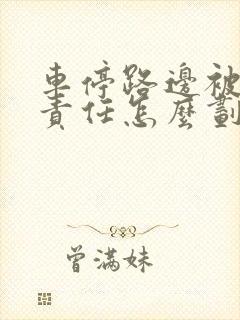 車停路邊被
責任怎麼劃
曾满妹